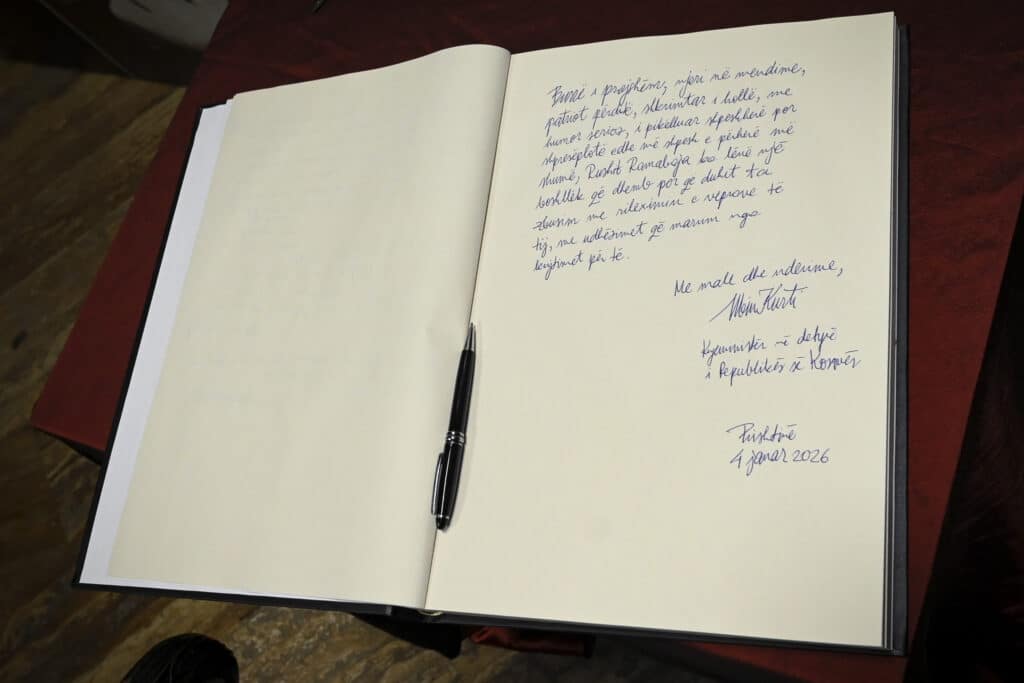 Burrë i przojhëm, njeri në mendime,
patriot përditë, shkrimtar i hollë, me
humor serioz, i pikëlluar shpeshherë por
shpresëplotë edhe më shpesh e përherë më
shumë, Rushit Ramabaja ka lënë një
boshllëk që dhemb por që duhet ta
zbusim me rileximin e veprave të
tij, me udhëzimet që marrim nga
kujtimet për të.
Me mall dhe nderime,
Albin Kurti
Kryeministër në detyrë
i Republikës së Kosovës
Prishtinë
4 janar 2026